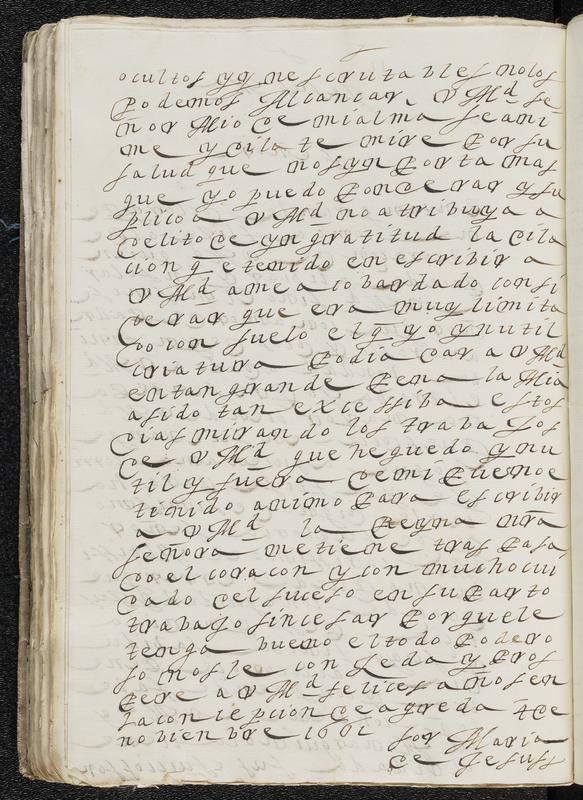 ocultos y yn nescrutables no los
Podemos Alcancar, v Md se
ñor Mio de mi alma se ani
me y dila te mire Por su
salud que nos yn Porta mas
que yo puedo Ponderar y su
plico a v Md no atribuya a
delito de yn gratitud la dila
cion q̄ e tenido en escribir a
v Md a me a cobardado consi
derar que era muy limita
do con suelo el q̄ yo ynutil
criatura Podia dar a v Md
en tan grande Pena la Mia
a sido tan excessiba estos
dias mirando los traba Jos
de v Md que he quedo ynu
til y fuera de mi Pues no e
tinido animo Para escribir
a v Md la Reyna nr̄a
señora me tiene tras Pasa
do el coracon y con mucho cui
dado del suceso en su Parto
trabajo sin cesar Por que le
tenga bueno el todo Podero
so nos le con seda y Pros
Pere a v Md felices años en
la con cepcion de agreda 4 de
nobienbre 1661 sor Maria
de Jesus